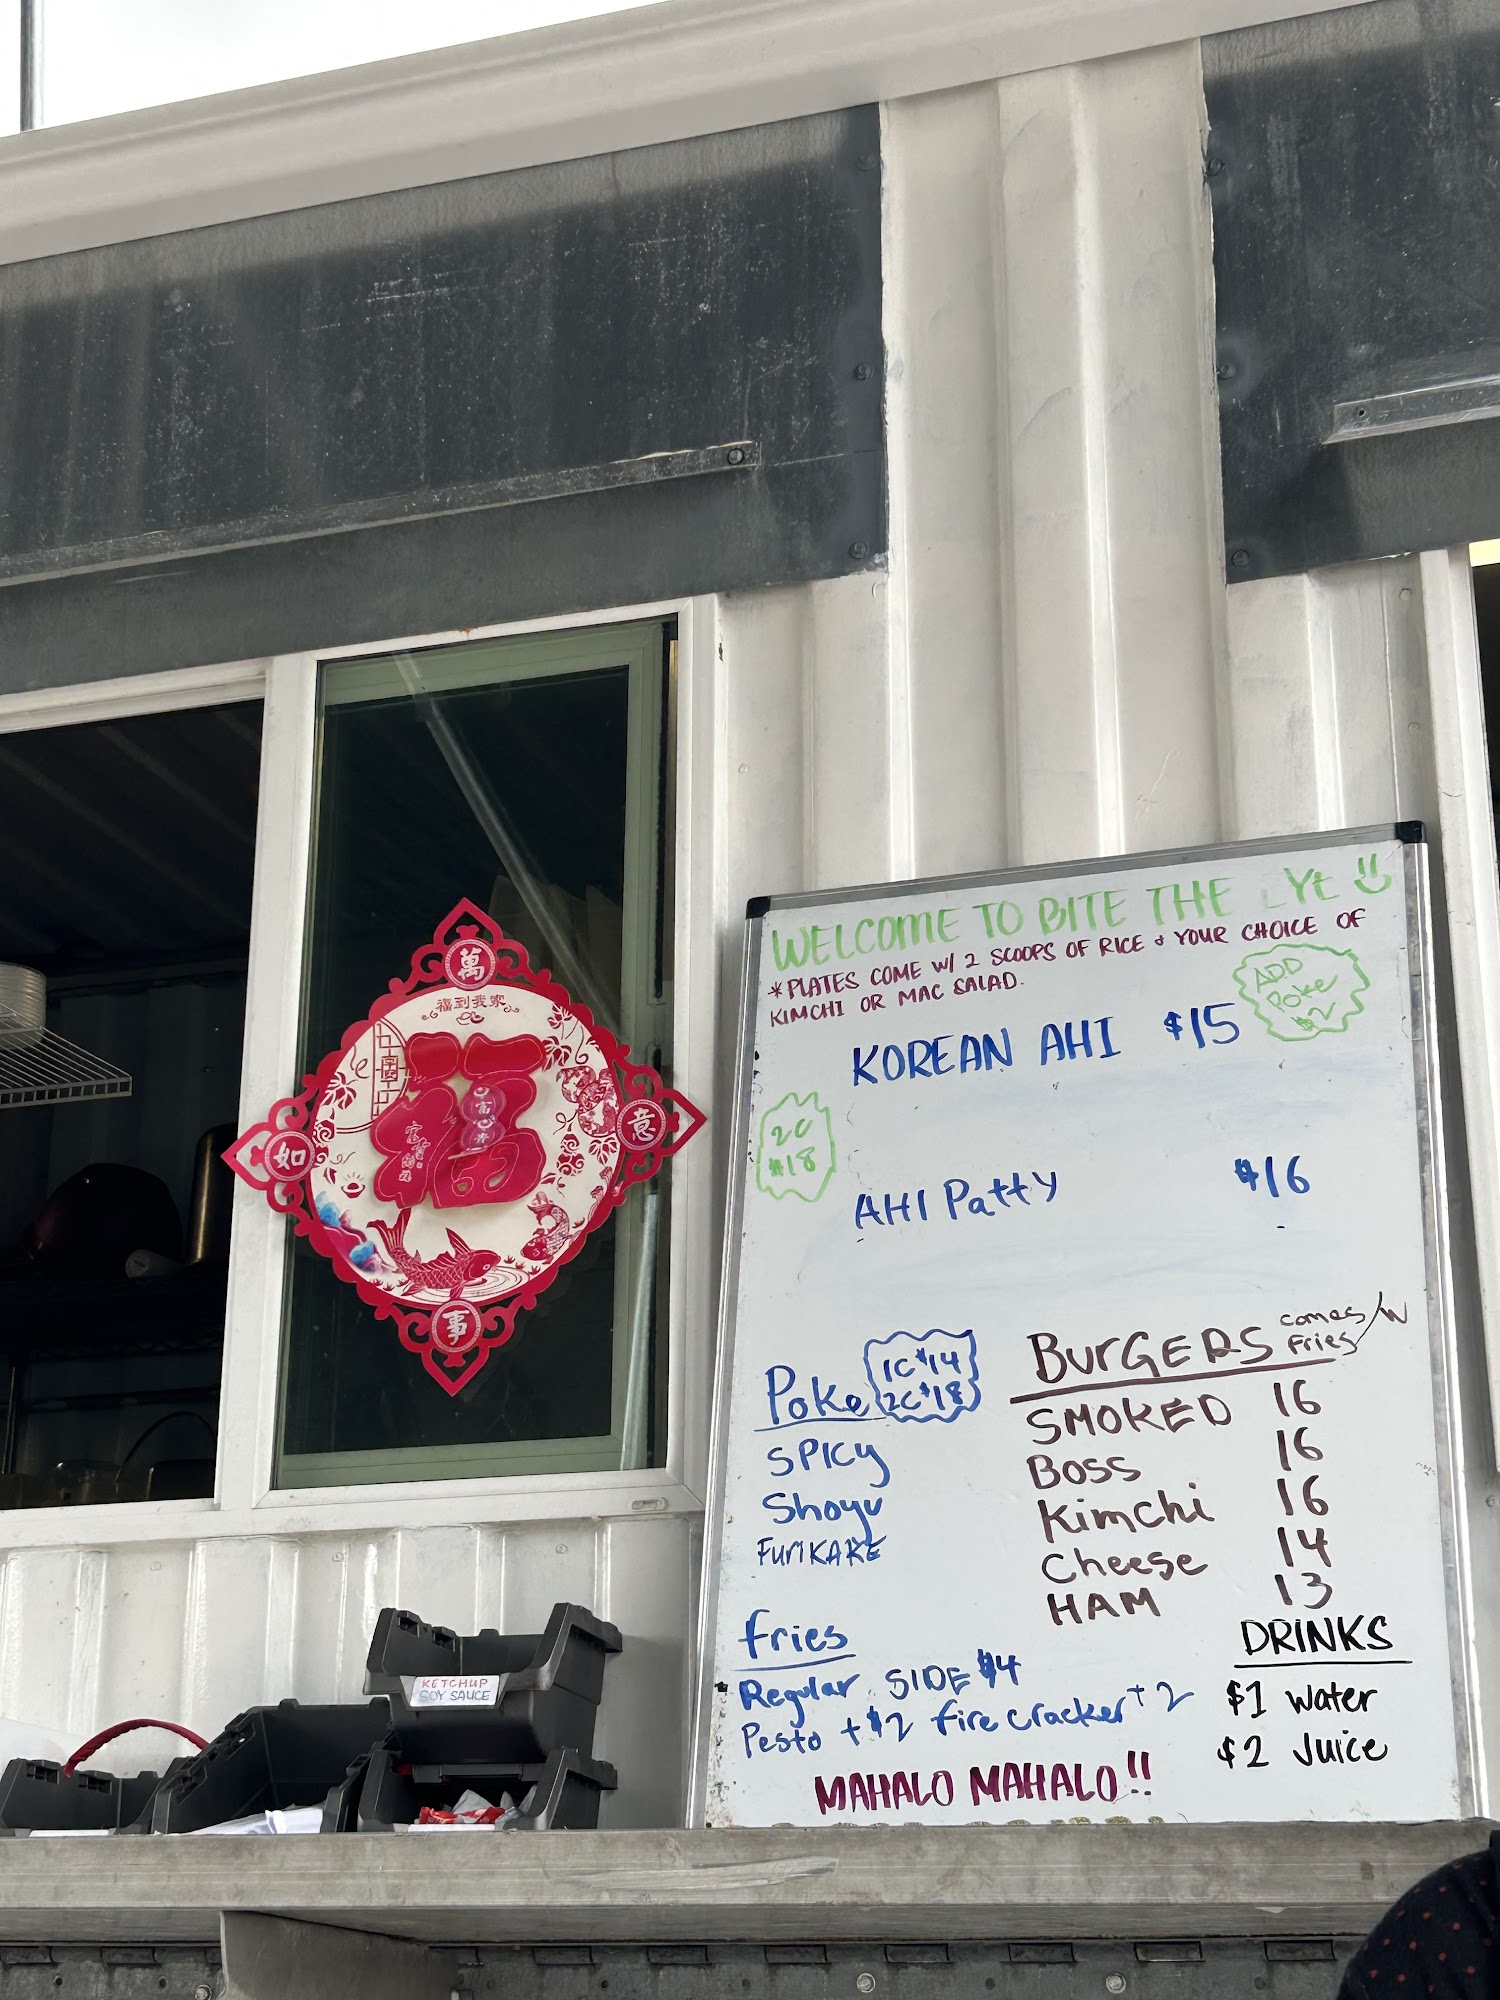 萬
福到我家
福
富
如
意
事
KETCHUP
SOY SAUCE
WELCOME TO BITE THE YE
*PLATES COME W/ 2 SCOOPS OF RICE & YOUR CHOICE OF
KIMCHI OR MAC SALAD.
ADD
Poke
$2
KOREAN AHI $15
2C
$18
AHI Patty $16
Poke
1C $14
2C $18
SPICY
Shoyu
FURIKAKE
BurGERS comes /w
Fries
SMOKED 16
BOSS 16
Kimchi 16
Cheese 14
HAM 13
fries
Regular SIDE $4
Pesto + $2 fire cracker + 2
DRINKS
$1 Water
$2 Juice
MAHALO MAHALO!!